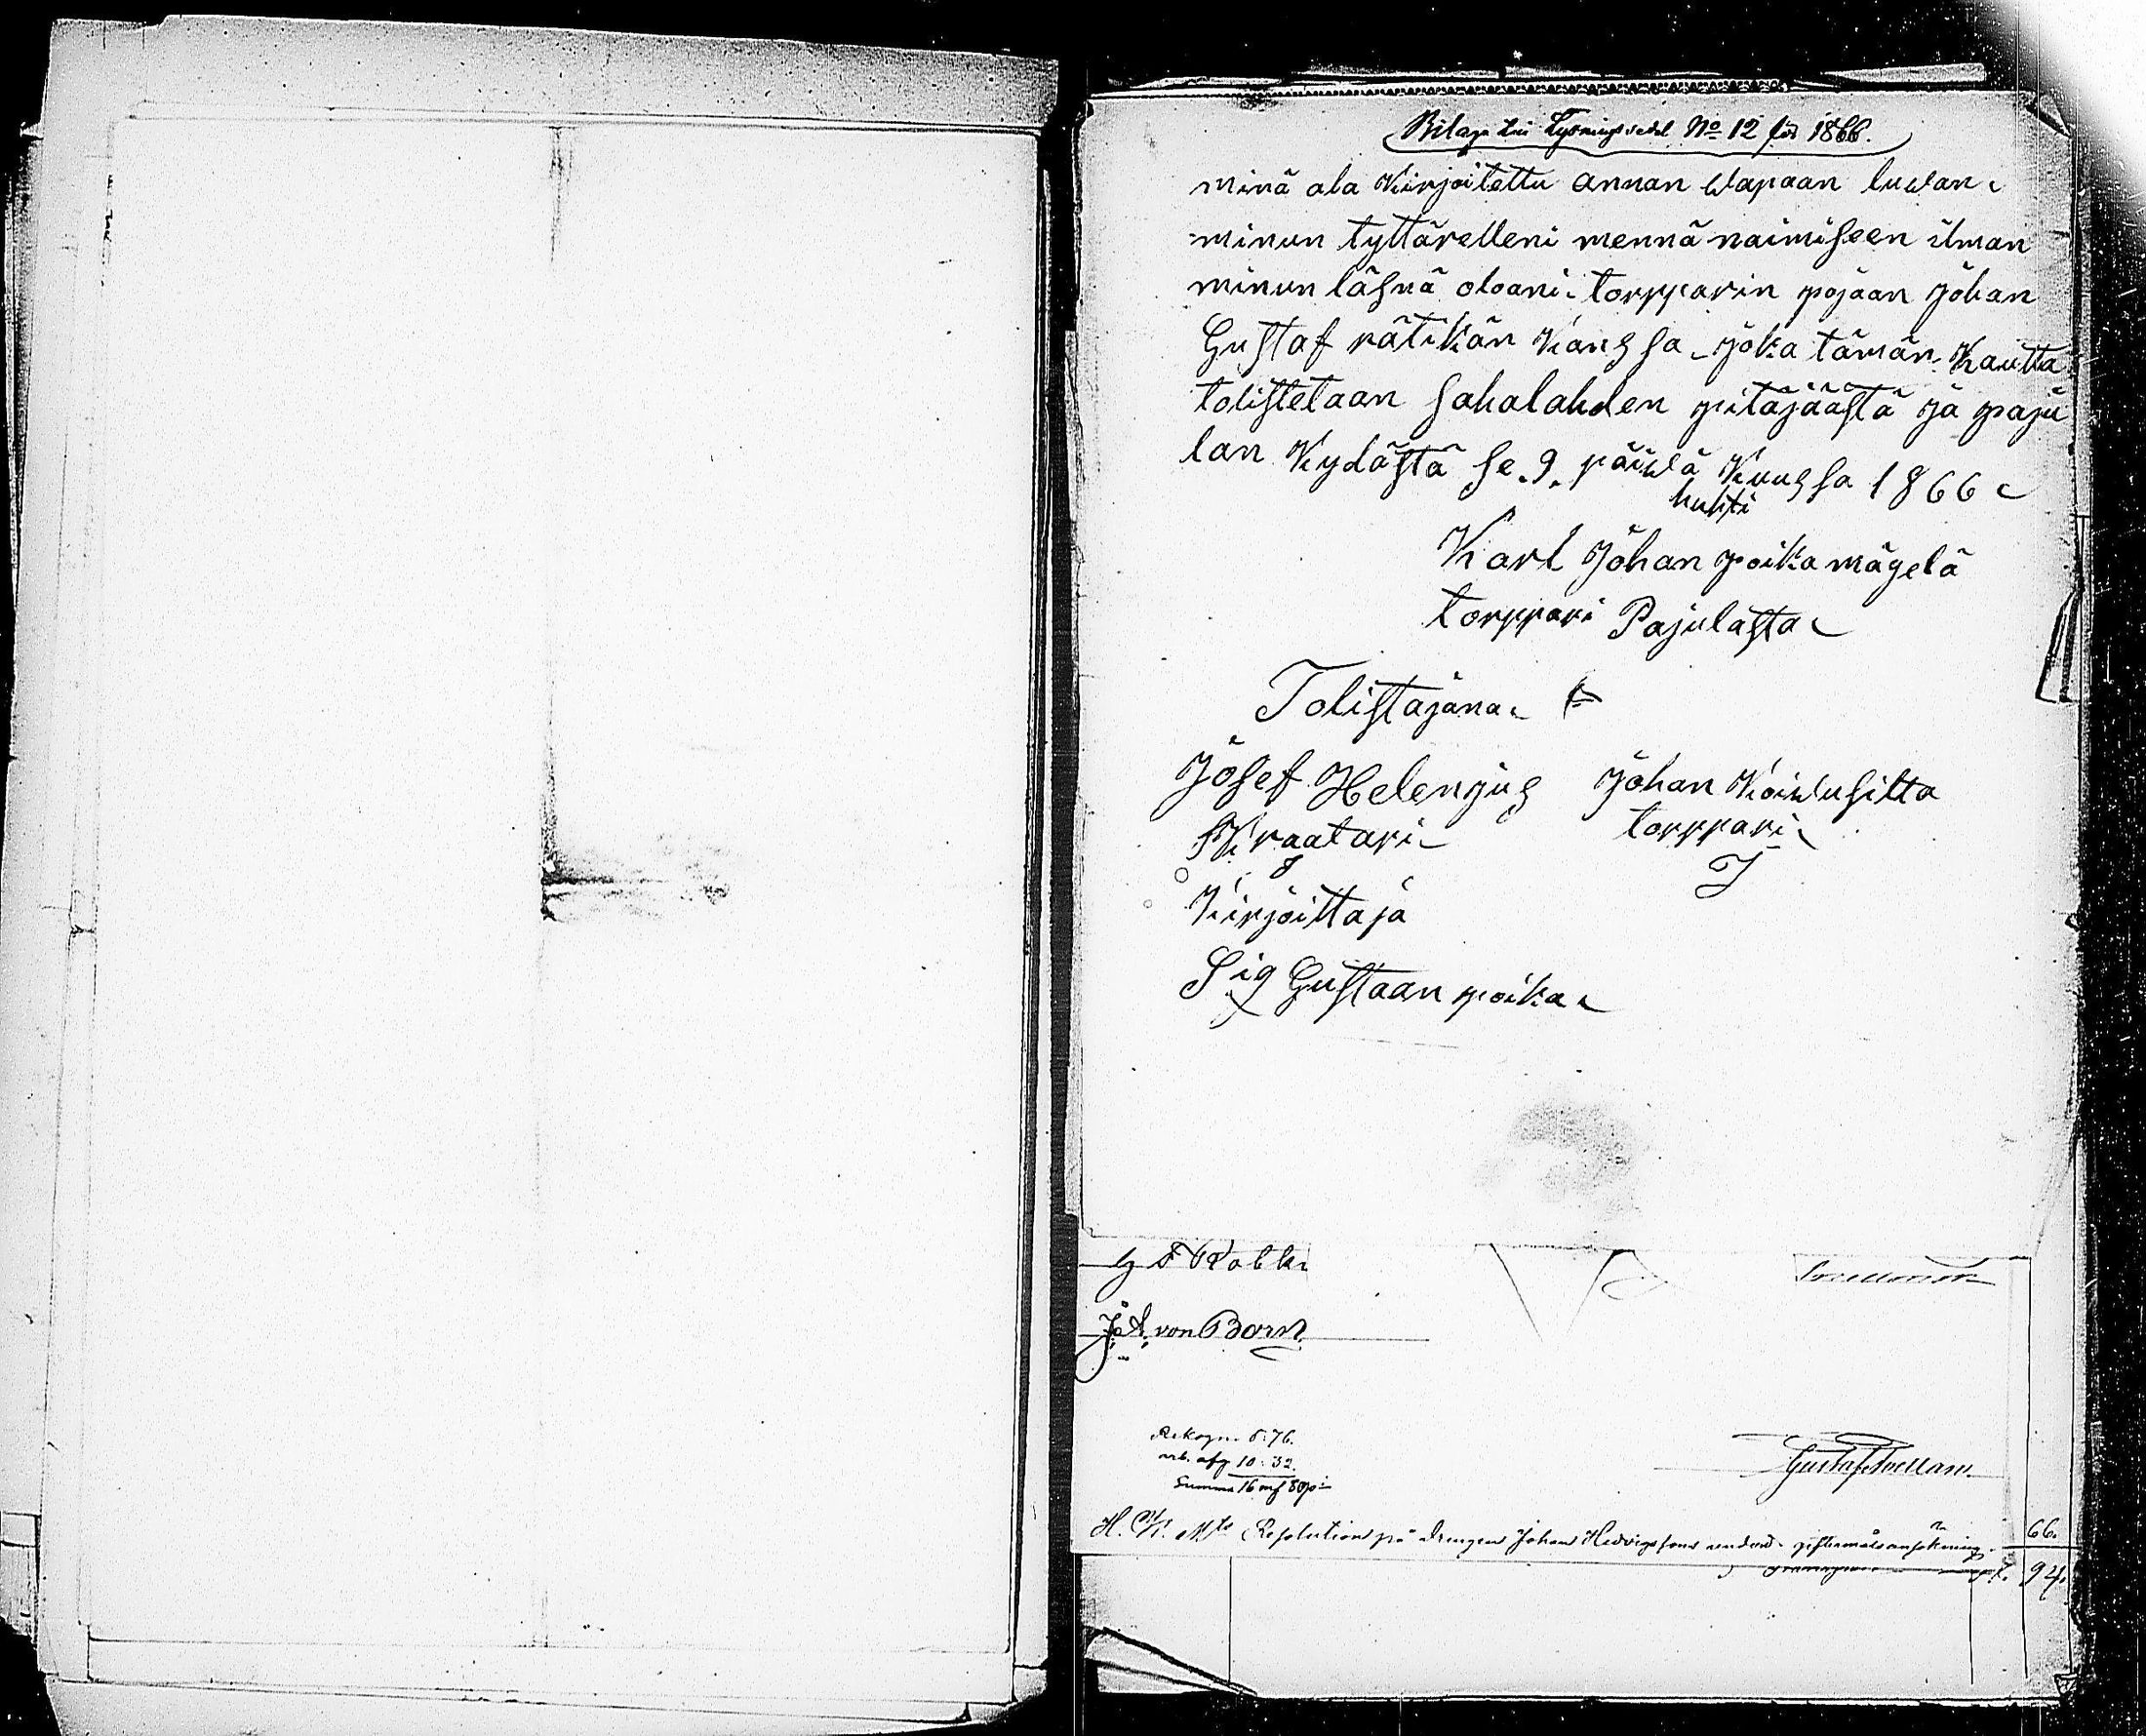 Bilaga till Lysningssedel No 12 för 1866.
minä ala Kirjoitettu annan wapaan luwan
minun tyttärelleni mennä naimiseen ilman
minun läsnä oloani torpparin pojaan Johan
Gustaf rätikän Kanssa joka tämän Kautta
tolistetaan Sahalahden pitäjäästä ja paju
lan Kydästä se 9 päiwä Kuussa 1866
huhti
Karl Johan poika mägelä
torppari Pajulasta
Tolistajana
Josef Helenjus Johan Koiwusilta
Kraatari torppari
Kirjoittaja
Sig Gustaan poika
J A von Born
Rekogn. 6:76.
arb. afg 10:32.
Summa 16 mf 80 pi
Gustaf
H. K. Mts Resolution på drengen Johan Hedvigssons underd. giftermålsansökning. 66.
94.